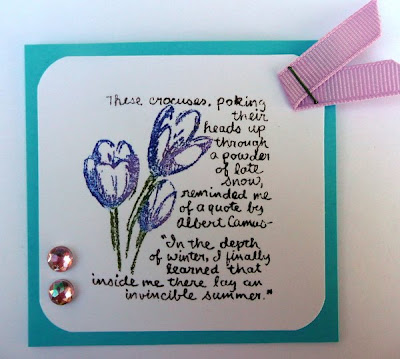 These crocuses, poking
their
heads up
through
a powder
of late
snow,
reminded me
of a quote by
Albert Camus-
"In the depth
of winter, I finally
learned that
inside me there lay an
invincible summer."